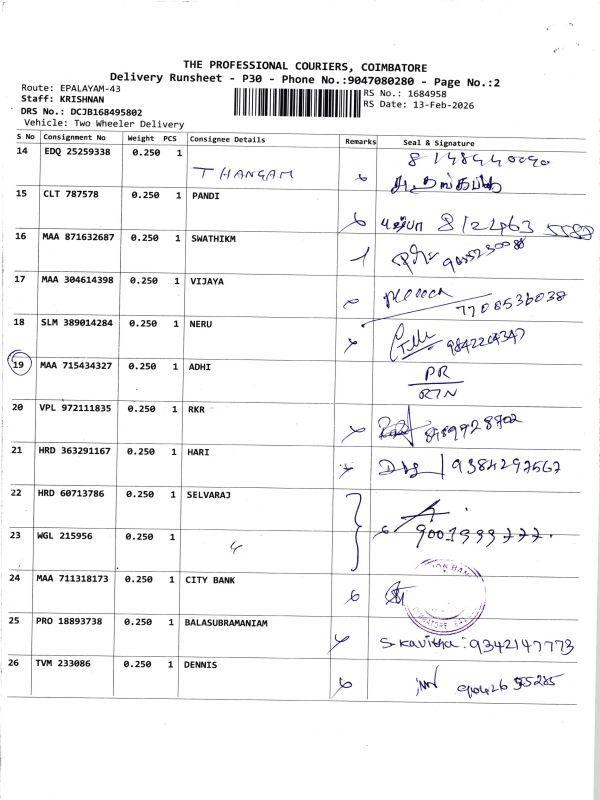 THE PROFESSIONAL COURIERS, COIMBATORE
Delivery Runsheet - P30 - Phone No.:9047080280 - Page No.:2
Route: EPALAYAM-43
RS No.: 1684958
Staff: KRISHNAN
RS Date: 13-Feb-2026
DRS No.: DCJB168495802
Vehicle: Two Wheeler Delivery
S No Consignment No Weight PCS Consignee Details Remarks Seal & Signature
14 EDQ 25259338 0.250 1 THANGAM
15 CLT 787578 0.250 1 PANDI
16 MAA 871632687 0.250 1 SWATHIKM
17 MAA 304614398 0.250 1 VIJAYA 7708536038
18 SLM 389014284 0.250 1 NERU 9842204347
19 MAA 715434327 0.250 1 ADHI PR
RTN
20 VPL 972111835 0.250 1 RKR 8489928702
21 HRD 363291167 0.250 1 HARI 9384297567
22 HRD 60713786 0.250 1 SELVARAJ
23 WGL 215956 0.250 1 9001999777.
24 MAA 711318173 0.250 1 CITY BANK
25 PRO 18893738 0.250 1 BALASUBRAMANIAM S-kavitha: 9342147773
26 TVM 233086 0.250 1 DENNIS